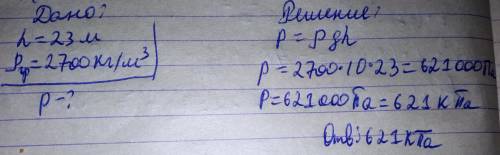 Дано:
h = 23 м
ρгр = 2700 кг/м³
p - ?
Решение:
P = ρgh
p = 2700·10·23 = 621000 Па
P = 621000 Па = 621 кПа
Отв: 621 кПа